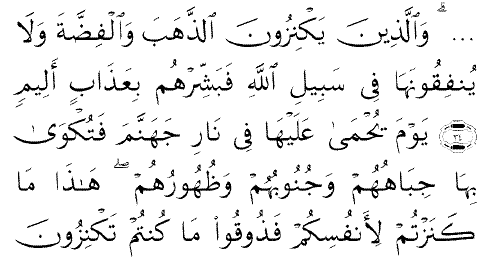 ... ۗ وَٱلَّذِينَ يَكْنِزُونَ ٱلذَّهَبَ وَٱلْفِضَّةَ وَلَا
يُنفِقُونَهَا فِى سَبِيلِ ٱللَّهِ فَبَشِّرْهُم بِعَذَابٍ أَلِيمٍ
۝٣٤ يَوْمَ يُحْمَىٰ عَلَيْهَا فِى نَارِ جَهَنَّمَ فَتُكْوَىٰ
بِهَا جِبَاهُهُمْ وَجُنُوبُهُمْ وَظُهُورُهُمْ ۖ هَـٰذَا مَا
كَنَزْتُمْ لِأَنفُسِكُمْ فَذُوقُوا۟ مَا كُنتُمْ تَكْنِزُونَ